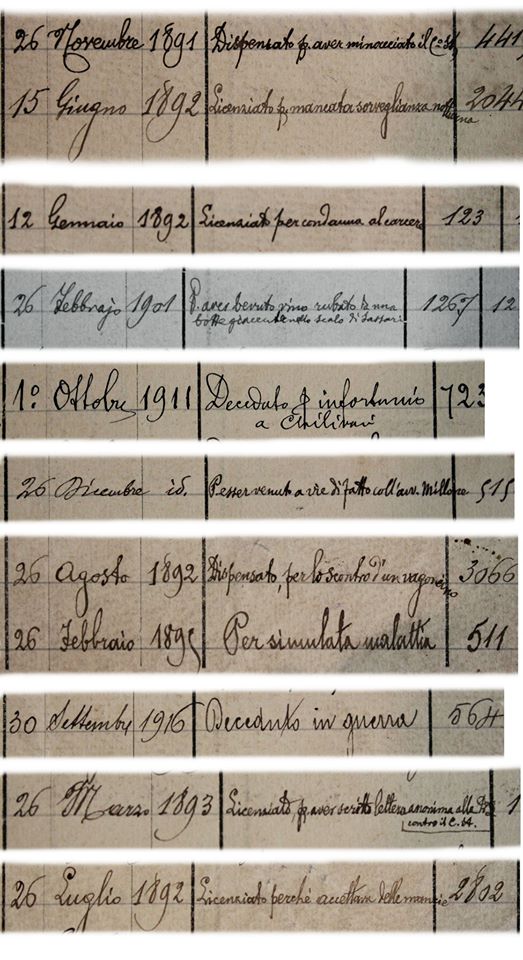 26 Novembre 1891 Dispensato p. aver minacciato il C° St. 441
15 Giugno 1892 Licenziato p. mancata sorveglianza notturna 2044
12 Gennaio 1892 Licenziato per condanna al carcere 123
26 Febbrajo 1901 P. aver bevuto vino rubato da una 1267 12
botte giacente nello scalo di Sassari
1° Ottobre 1911 Deceduto p. infortunio 723
a Chilivani
26 Dicembre id. P. esser venuto a vie di fatto coll'avv. Millone 515
26 Agosto 1892 Dispensato, per lo scontro d'un vagoncino 3066
26 Febbraio 189 Per simulata malattia 511
30 Settembre 1916 Deceduto in guerra 564
26 Marzo 1893 Licenziato p. aver scritto lettera anonima alla 1
contro il C. St.
26 Luglio 1892 Licenziato perché accettava delle mancie 2802